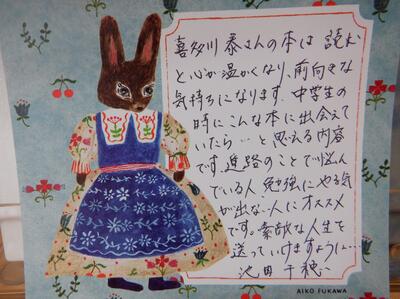 喜多川泰さんの本は 読む
と心が温かくなり、前向きな
気持ちになります。中学生の
時にこんな本に出会えて
いたら…と思える内容
です。進路のことで悩ん
でいる人 勉強にやる気
が出ない人にオススメ
です。素敵な人生を
送っていけますように…
池田 千穂
AIKO FUKAWA